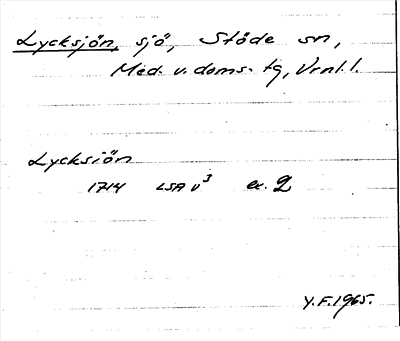 Lycksjön, sjö, Stöde sn,
Med. v. doms. tg, Vrnl. l.
Lycksiön
1714 LSA V³ a. 2
Y.F. 1965.